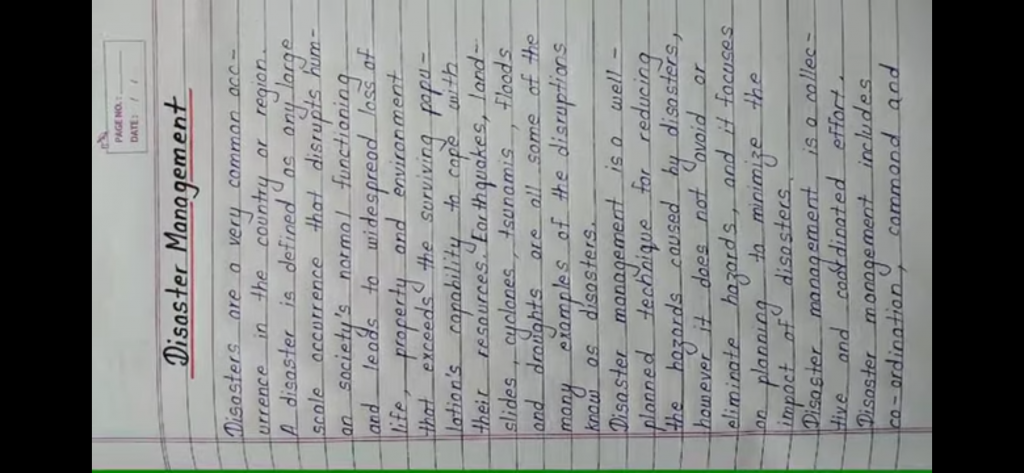 PAGE NO.:
DATE: / /
Disaster Management
Disasters are a very common occ-
urrence in the country or region.
A disaster is defined as any large
scale occurrence that disrupts hum-
an society's normal functioning
and leads to widespread loss of
life, property and environment
that exceeds the surviving popu-
lation's capability to cope with
their resources. Earthquakes, land-
slides, cyclones, tsunamis, floods
and droughts are all some of the
many examples of the disruptions
know as disasters.
Disaster management is a well-
planned technique for reducing
the hazards caused by disasters,
however it does not avoid or
eliminate hazards, and it focuses
on planning to minimize the
impact of disasters.
Disaster management is a collec-
tive and coordinated effort.
Disaster management includes
co-ordination, command and